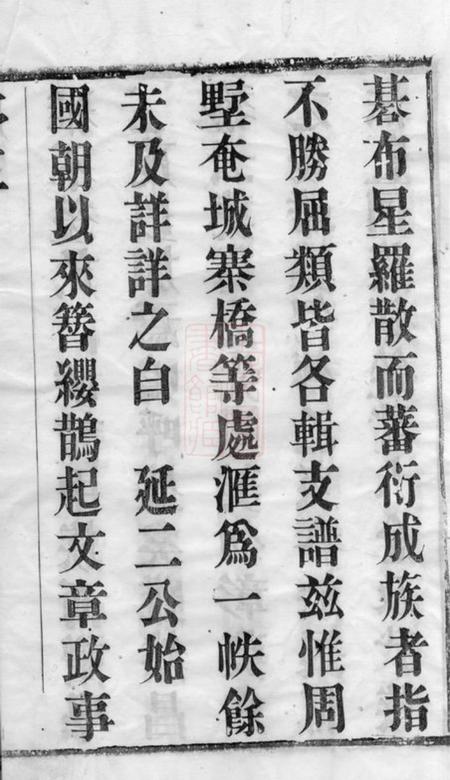 碁布星羅散而蕃衍成族者指
不勝屈類皆各輯支譜茲惟周
墅奄城寨橋等處滙爲一帙餘
未及詳詳之自　延二公始
國朝以來簪纓鵲起文章政事